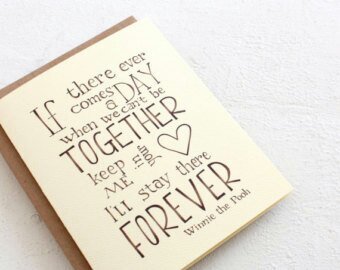 If there ever
comes a DAY
when we can't be
TOGETHER
keep
ME in your
I'll stay there
FOREVER
Winnie the Pooh